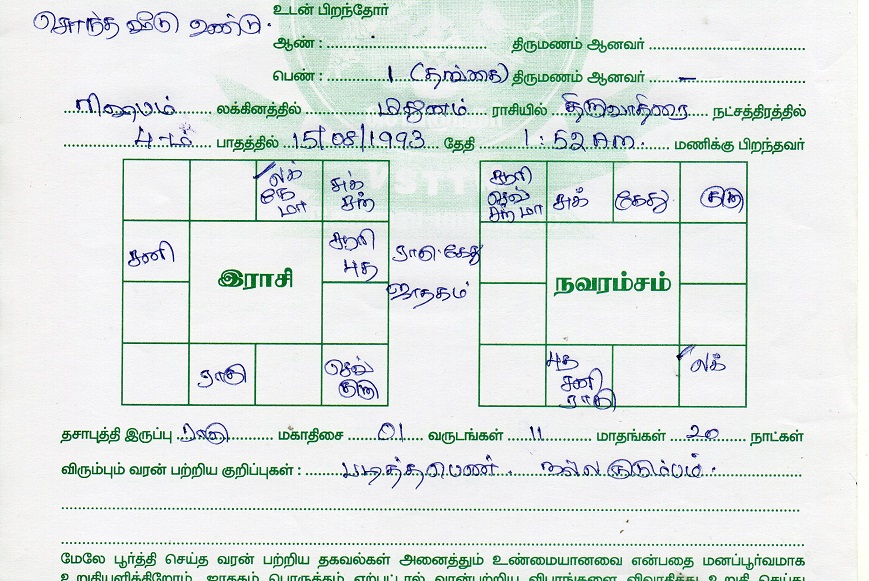 சொந்த வீடு உண்டு.
உடன் பிறந்தோர்
ஆண் : திருமணம் ஆனவர்
பெண் : 1 (தங்கை) திருமணம் ஆனவர் —
ரிஷபம் லக்கினத்தில் மிதுனம் ராசியில் திருவாதிரை நட்சத்திரத்தில்
4-ம் பாதத்தில் 15/08/1993 தேதி 1:52 A.m. மணிக்கு பிறந்தவர்
லக் கே மா
சுக் சந்
சனி
சூரி புத
இராசி
ராகு
செவ் குரு
ராகு-கேது ஜாதகம்
சூரி செவ் சந் மா
சுக்
கேது
குரு
நவரம்சம்
புத சனி ராகு
லக்
தசாபுத்தி இருப்பு ராகு மகாதிசை 01 வருடங்கள் 11 மாதங்கள் 20 நாட்கள்
விரும்பும் வரன் பற்றிய குறிப்புகள் : படித்தபெண். நல்ல குடும்பம்.
மேலே பூர்த்தி செய்த வரன் பற்றிய தகவல்கள் அனைத்தும் உண்மையானவை என்பதை மனப்பூர்வமாக
உறுதியளிக்கிறோம். ஜாதகம் பொருத்தம் ஏற்பட்டால் வரன்பற்றிய விபரங்களை விவாதித்து உறுதி செய்து